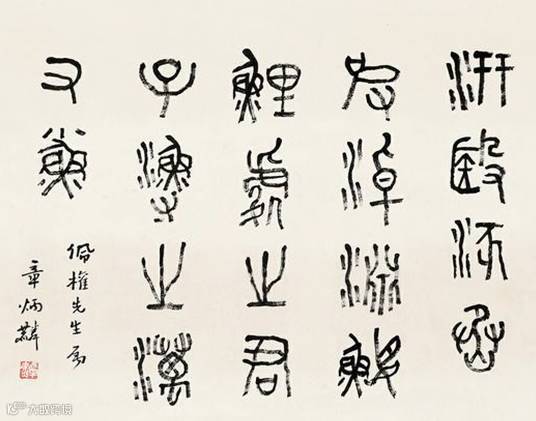 汧殹沔丞
皮淖淵鰋
鯉處之君
子漁之澫
又小魚
權先生屬
章炳麟
大数跨境